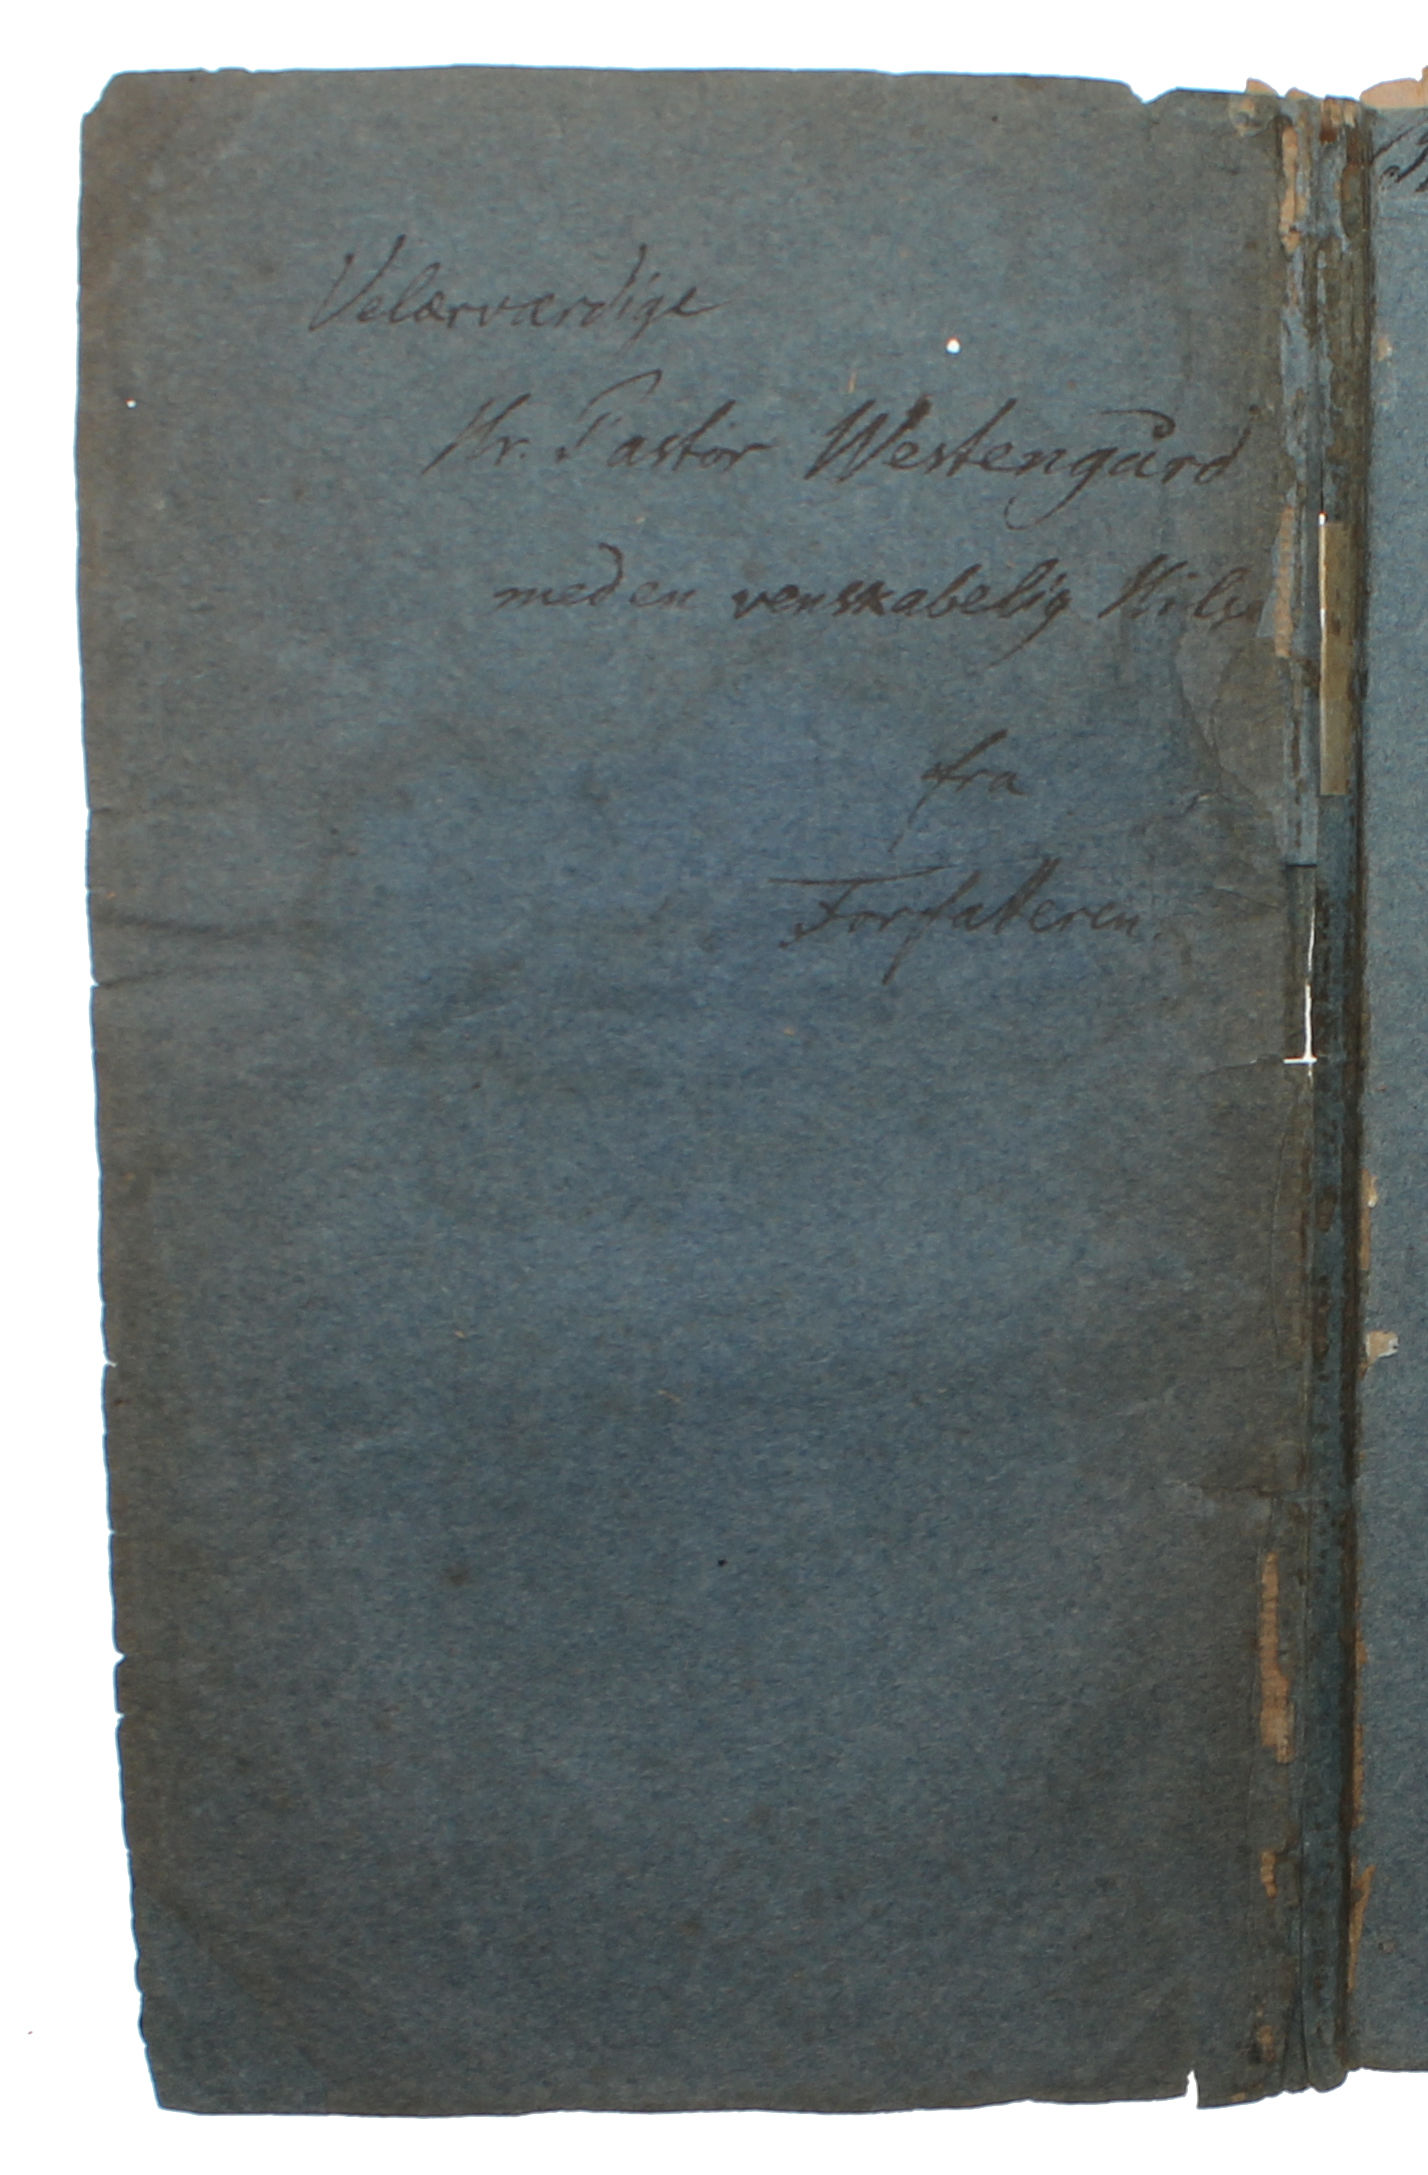 Velærværdige
Hr. Pastor Westengård
med en venskabelig Hilse
fra
Forfatteren.